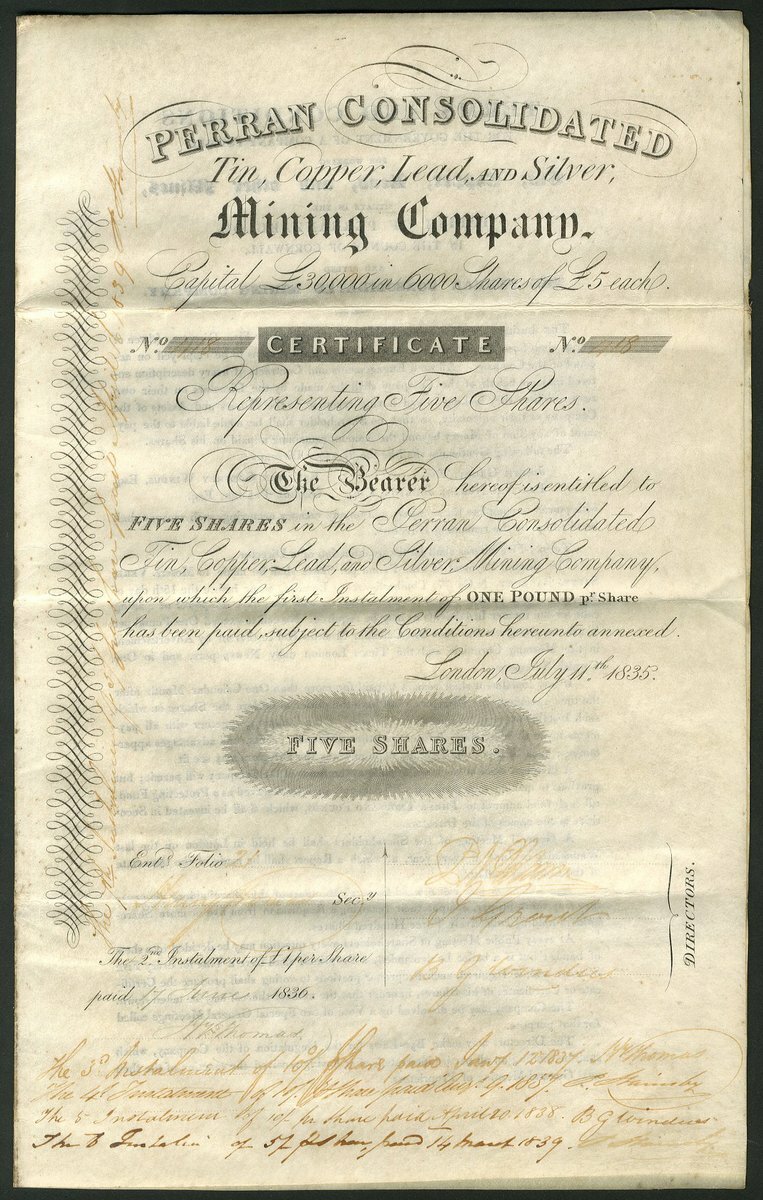 PERRAN CONSOLIDATED
Tin, Copper, Lead, AND Silver,
Mining Company.
Capital £30,000 in 6000 Shares of £5 each.
No. 418 CERTIFICATE No. 418
Representing Five Shares.
The Bearer hereof is entitled to
FIVE SHARES in the Perran Consolidated
Tin, Copper, Lead, and Silver, Mining Company,
upon which the first Instalment of ONE POUND pr. Share
has been paid, subject to the Conditions hereunto annexed.
London, July 11.th 1835.
FIVE SHARES.
Entd. Folio
Secy
B G Windus
DIRECTORS.
The 2nd Instalment of £1 per Share
paid 17 June 1836.
Wm Thomas
The 3d Instalment of 10/ Share paid Jany 12 1837. Wm Thomas
The 4 Instalment of 10/ Share paid Augt 9. 1837
The 5 Instalment of 10/ pr share paid April 20 1838. B G Windus
The 6 Instalt of 5/ paid 14 March 1839.